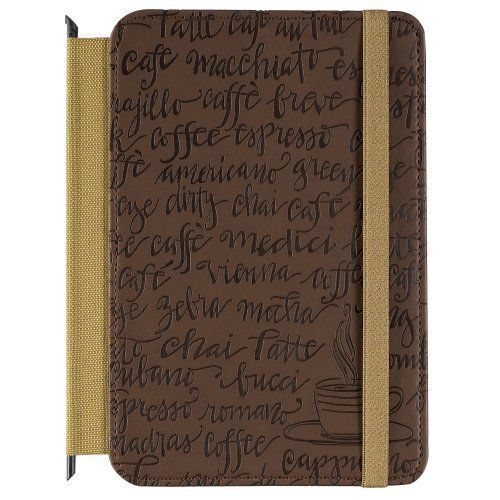 latte café au lait
café macchiato
rajillo caffè breve
coffee espresso
americano green
eye dirty chai café
caffè medici
café vienna coffee
eye zebra mocha
chai latte
ubano bucci
espresso romano
madras coffee cappucc